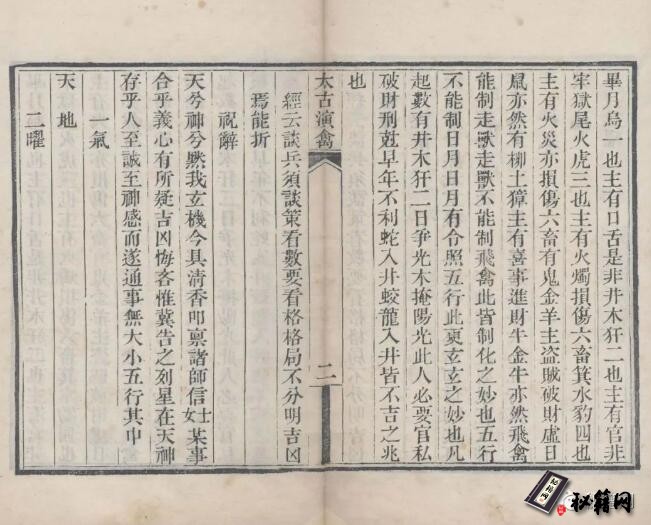 畢月烏一也主有口舌是非井木犴二也主有官非
牢獄尾火虎三也主有火燭損傷六畜箕水豹四也
主有火災亦損傷六畜有鬼金羊主盜賊破財虛日
鼠亦然有柳土獐主有喜事進財牛金牛亦然飛禽
能制走獸走獸不能制飛禽此皆制化之妙也五行
不能制日月日月有令照五行此更玄玄之妙也凡
起數有井木犴二日爭光木掩陽光此人必要官私
破財刑尅早年不利蛇入井蛟龍入井皆不吉之兆
也
太古演禽
二
經云談兵須談策看數要看格格局不分明吉凶
焉能折
祝辭
天兮神兮煞我玄機今具清香叩禀諸師信士女某事
合乎義心有所疑吉凶悔吝惟冀告之列星在天神
存乎人至誠至神感而遂通事無大小五行其中
一氣
天地
二曜
秘籍网